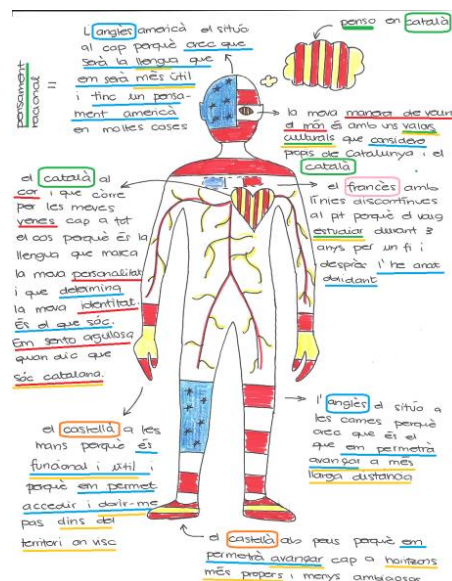 L'anglès americà el situo
al cap perquè crec que
serà la llengua que
em serà més útil
i tinc un pensa-
ment americà
en moltes coses
pensament
racional
=
penso en català
la meva manera de veure
el món és amb uns valors
culturals que considero
propis de Catalunya i el
català
el català al
cor i que corre
per les meves
venes cap a tot
el cos perquè és la
llengua que marca
la meva personalitat
i que determina
la meva identitat.
És el que sóc.
Em sento orgullosa
quan dic que
sóc catalana.
el francès amb
línies discontínues
al pit perquè el vaig
estudiar durant 3
anys per un fi i
després l'he anat
oblidant
el castellà a les
mans perquè és
funcional i útil i
perquè em permet
accedir i obrir-me
pas dins del
territori on visc
l'anglès el situo a
les cames perquè
crec que és el
que em permetrà
avançar a més
llarga distància
el castellà als peus perquè em
permetrà avançar cap a horitzons
més propers i menys ambiciosos